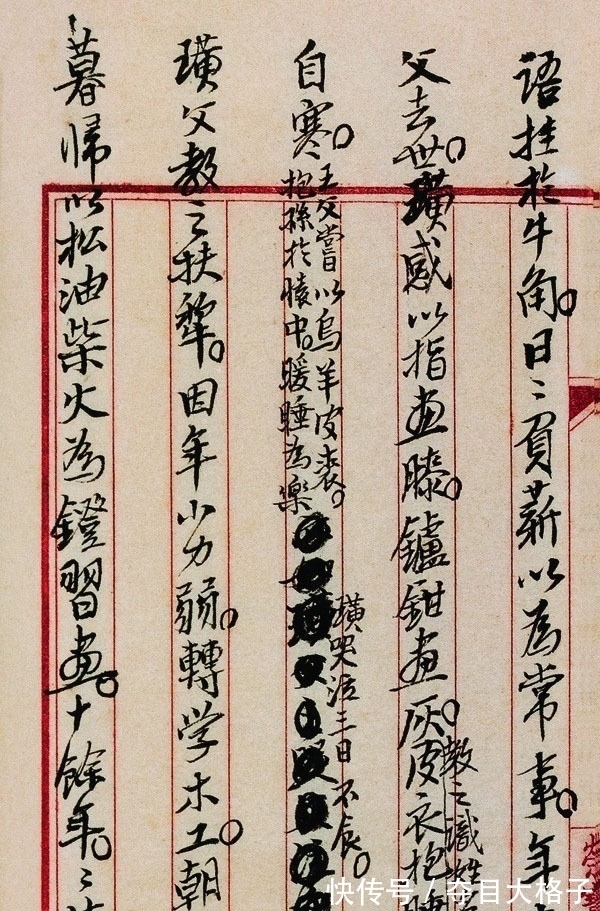 语挂於牛角。日〻負薪以為常事。年
父去世。璜感以指画膝。鑪鉗画灰。皮衣抱
教之識姓
自寒。
王父嘗以烏羊皮裘。
抱孫於懷中。暖睡為樂
璜哭泣三日不食。
璜父教之扶犂。因年小力弱。轉学木工。朝
暮歸以松油柴火為鐙習画。十餘年。〻
快传号 / 夺目大格子